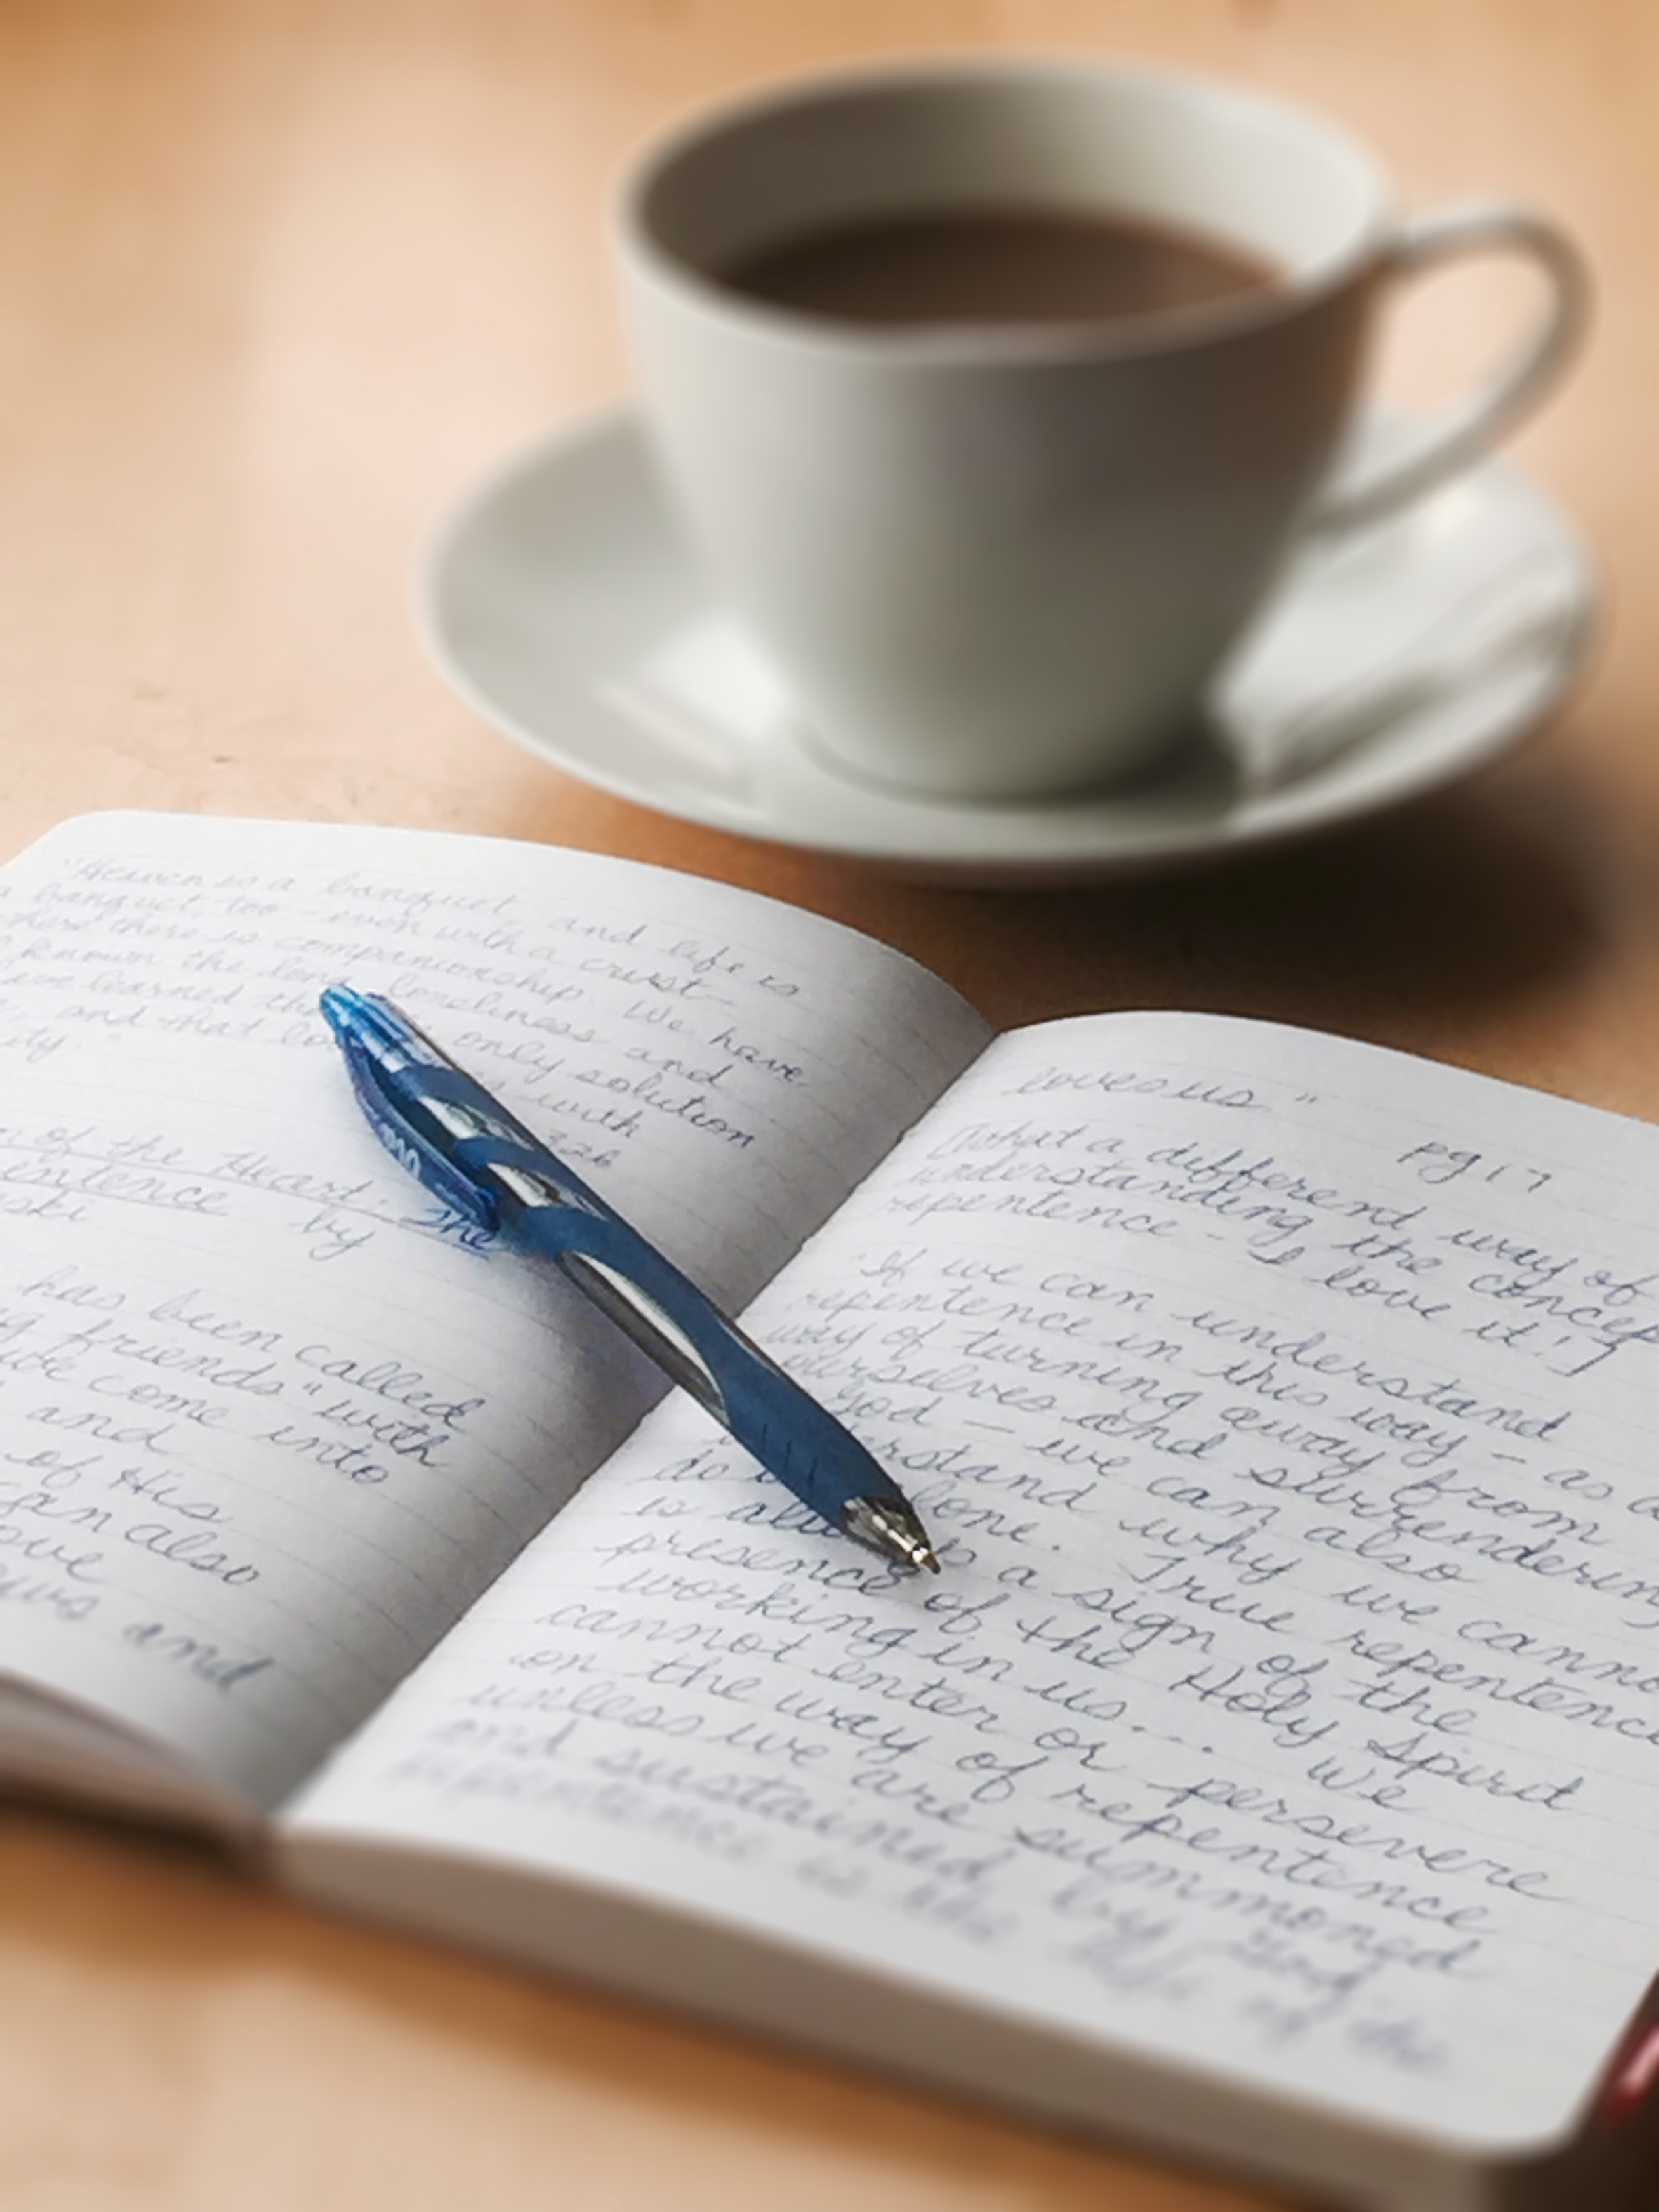 "Heaven is a banquet, and life is
a banquet, too - even with a crust -
where there is companionship. We have
known the long loneliness and
learned the only solution
and that lo with
dy." 326
of the Heart: The
entence by
ski
has been called
friends" with
we come into
and
of His
can also
ove
and
loves us."
pg 17
[What a different way of
understanding the concep
repentence - I love it!]
"If we can understand
repentence in this way - as a
way of turning away from
ourselves and surrendering
God - we can also
erstand why we canno
do lone. True repentence
is a sign of the
presence of the Holy Spirit
working in us... We
cannot enter or persevere
on the way of repentence
unless we are summoned
and sustained by God.
repentence is the life of the